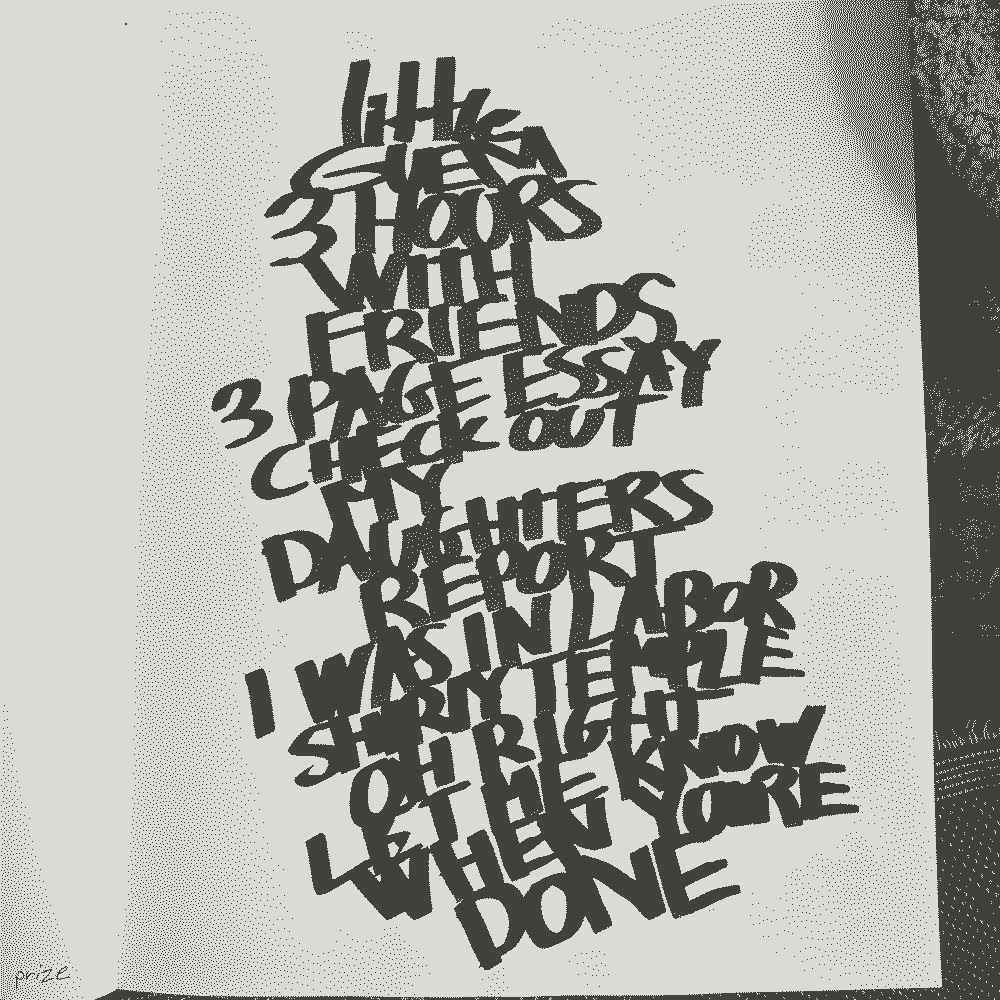 little
GUERA
3 HOURS
WITH
FRIENDS
3 PAGE ESSAY
CHECK OUT
MY
DAUGHTERS
REPORT
I WAS IN LABOR
SHARNY TEMPLE
OH RIGHT
LET ME KNOW
WHEN YOURE
DONE
prize